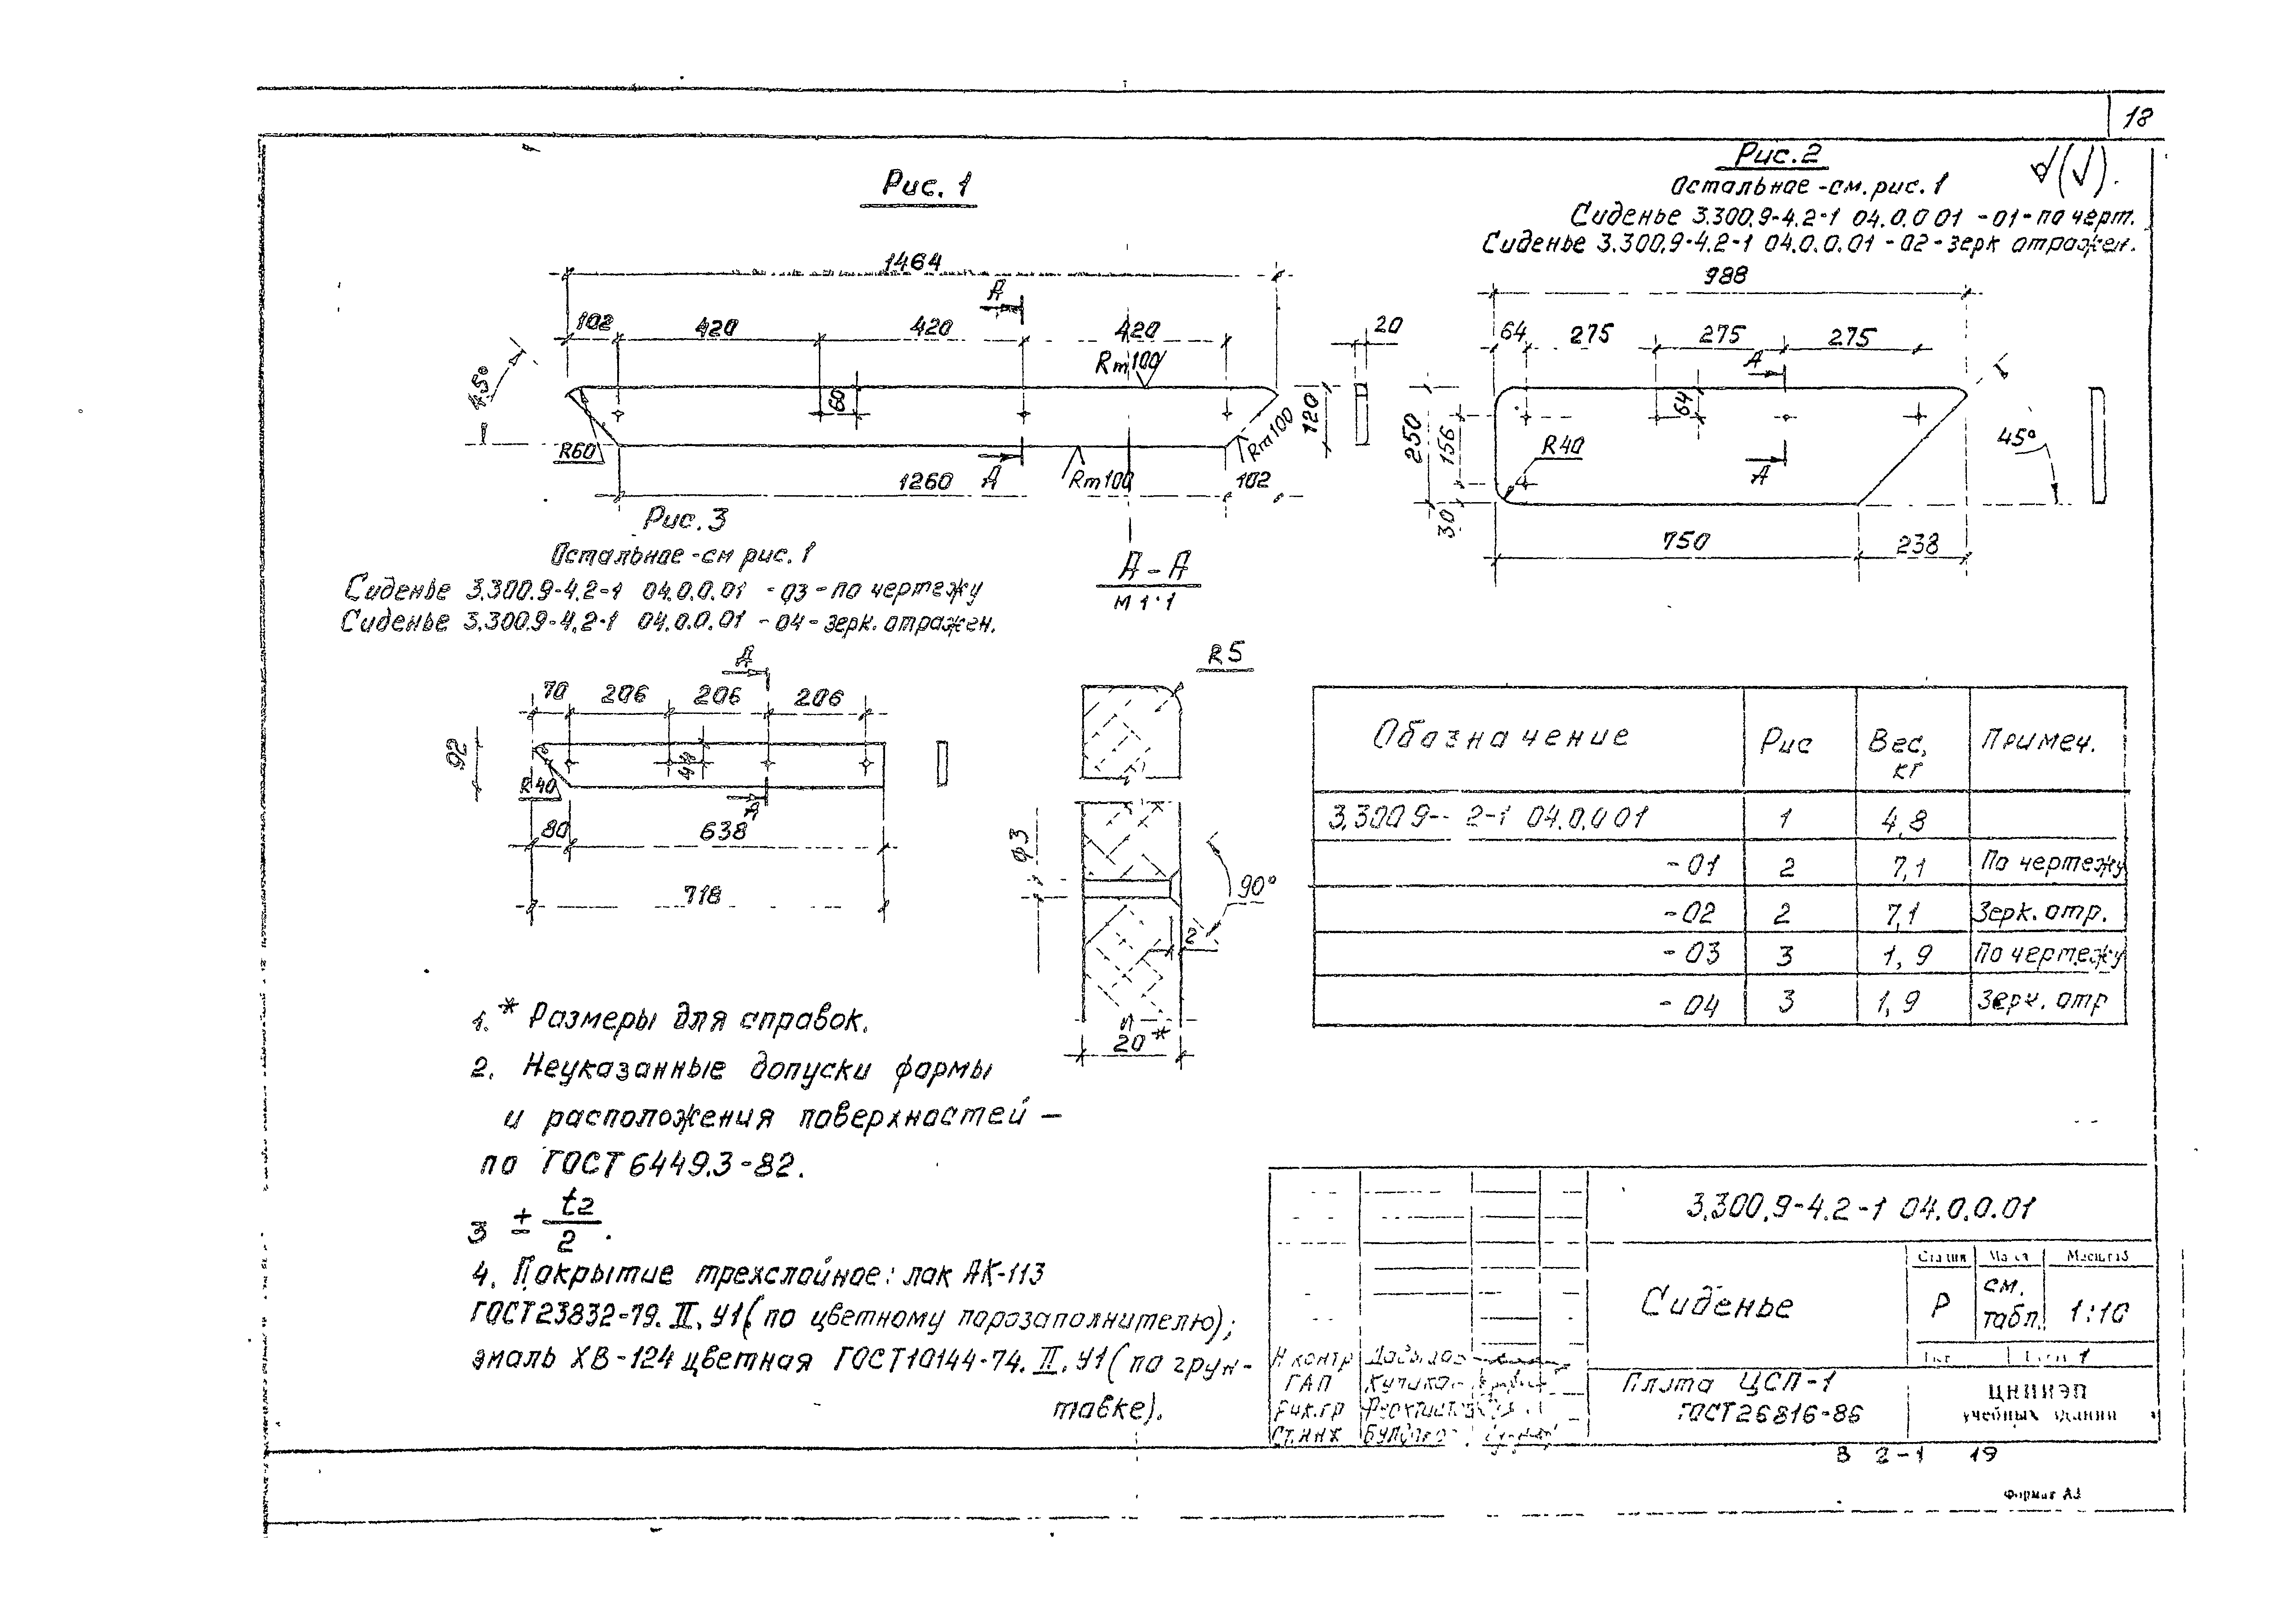 18
Рис. 1
1464
А
102 420 420 420
Rm100
20
45°
60
120
R60
Rm100
1260
А
Rm100
102
Рис.2
Остальное -см. рис. 1
Сиденье 3.300.9-4.2-1 04.0.0 01 -01-по черт.
Сиденье 3.300.9-4.2-1 04.0.0.01 -02-зерк отражен.
988
64 275 275 275
А
64
250
156
R40
45°
А
30
750 238
Рис. 3
Остальное -см рис. 1
Сиденье 3.300.9-4.2-1 04.0.0.01 -03-по чертежу
Сиденье 3.300.9-4.2-1 04.0.0.01 -04-зерк. отражен.
А
70 206 206 206
92
44
R40
А
80 638
718
А-А
М 1:1
R5
ф3
90°
2
20*
Обозначение Рис Вес, кг Примеч.
3.300 9-- 2-1 04.0.0 01 1 4,8
-01 2 7,1 По чертежу
-02 2 7,1 Зерк. отр.
-03 3 1,9 По чертежу
-04 3 1,9 Зерк. отр
1.* Размеры для справок.
2. Неуказанные допуски формы
и расположения поверхностей —
по ГОСТ 6449.3-82.
3 ± t2/2.
4. Покрытие трехслойное: лак АК-113
ГОСТ 23832-79. II. У1 (по цветному порозаполнителю);
эмаль ХВ-124 цветная ГОСТ10144-74. II. У1 (по грун-
товке).
3.300.9-4.2-1 04.0.0.01
Сиденье
Стадия Масштаб
Р см. табл. 1:10
1
Н контр
ГАП
Рук.гр
Ст.инж
Плита ЦСП-1
ГОСТ 26816-86
ЦНИИЭП
учебных здании
В 2-1 19
Формат А3